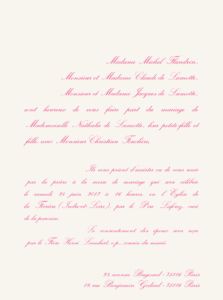 Madame Michel Flandrin,
Monsieur et Madame Claude de Lamotte,
Monsieur et Madame Jacques de Lamotte,
sont heureux de vous faire part du mariage de
Mademoiselle Nathalie de Lamotte, leur petite-fille et
fille, avec Monsieur Christian
Ils vous prient d'assister ou de vous unir
par la prière à la messe de mariage qui sera célébrée
le samedi 24 juin à 16 heures en l'Église de
la par le Père suivi
de la personne.
Le consentement des époux sera reçu
par le Père Henri cousin du marié.
75016 Paris
18 rue Benjamin Godard - 75016 Paris